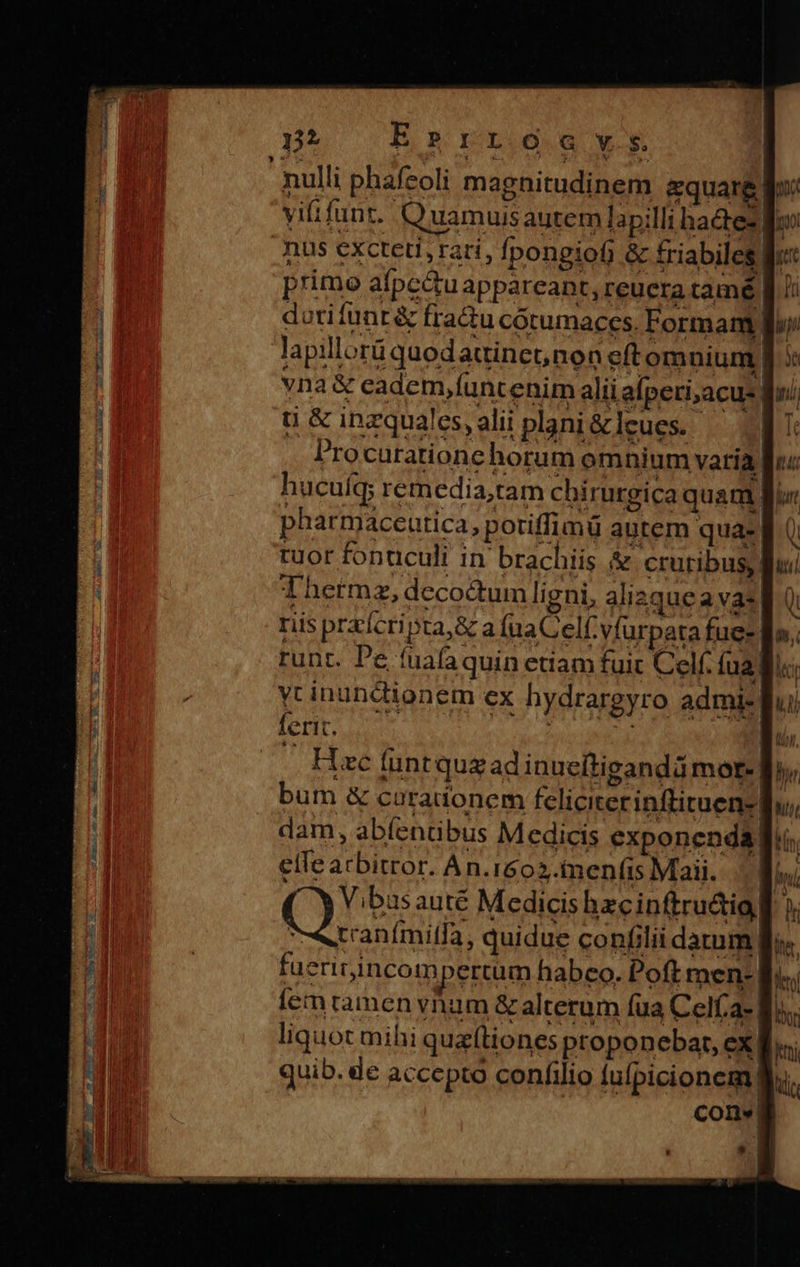 132 EPILOGVS.
nulli phaſeoli magnitudinem æquare
viſi ſunt. Quamuis autem lapilli hacte-
nus excreti, rari, ſpongioſi & friabiles
primo aſpectu appareant, reuera tamē
duri ſunt & fractu cōtumaces. Formam
lapillorū quod attinet, non eſt omnium
vna & eadem, ſunt enim alii aſperi, acu-
ti & inæquales, alii plani & leues.
Procuratione horum omnium varia
hucuſq; remedia, tam chirurgica quam
pharmaceutica, potiſſimū autem qua-
tuor fonticuli in brachiis & cruribus,
Thermæ, decoctum ligni, aliaque a va-
riis præſcripta, & a ſua Celſ. vſurpata fue-
runt. Pe ſuaſa quin etiam fuit Celſ. ſua
vt inunctionem ex hydrargyro admi-
ſerit.
Hæc ſunt quæ ad inueſtigandā mor-
bum & curationem feliciter inſtituen-
dam, abſentibus Medicis exponenda
eſſe arbitror. An. 1602. menſis Maii.
Quibus autē Medicis hæc inſtructio
tranſmiſſa, quidue conſilii datum
fuerit, incompertum habeo. Poſt men-
ſem tamen vnum & alterum ſua Celſ. a-
liquot mihi quæſtiones proponebat, ex
quib. de accepto conſilio ſuſpicionem
con-